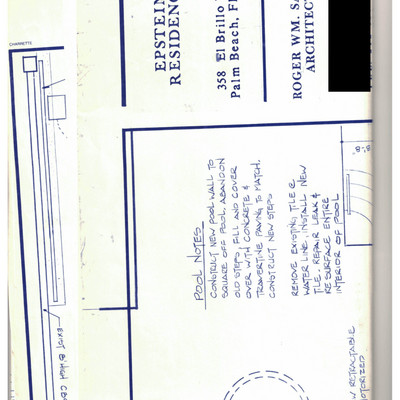 CHARRETTE
EPSTEIN
RESIDENCE
358 El Brillo
Palm Beach, Fl
ROGER WM. SA
ARCHITECT
POOL NOTES
CONSTRUCT NEW POOL WALL TO
SQUARE OFF POOL. ABANDON
OLD STEPS FILL AND COVER
OVER WITH CONCRETE &
TRAVERTINE PAVING TO MATCH.
CONSTRUCT NEW STEPS
REMOVE EXISTING TILE @
WATER LINE. INSTALL NEW
TILE. REPAIR LEAK &
RESURFACE ENTIRE
INTERIOR OF POOL
RETRACTABLE
MOTORIZED
EXIST. 8' HIGH